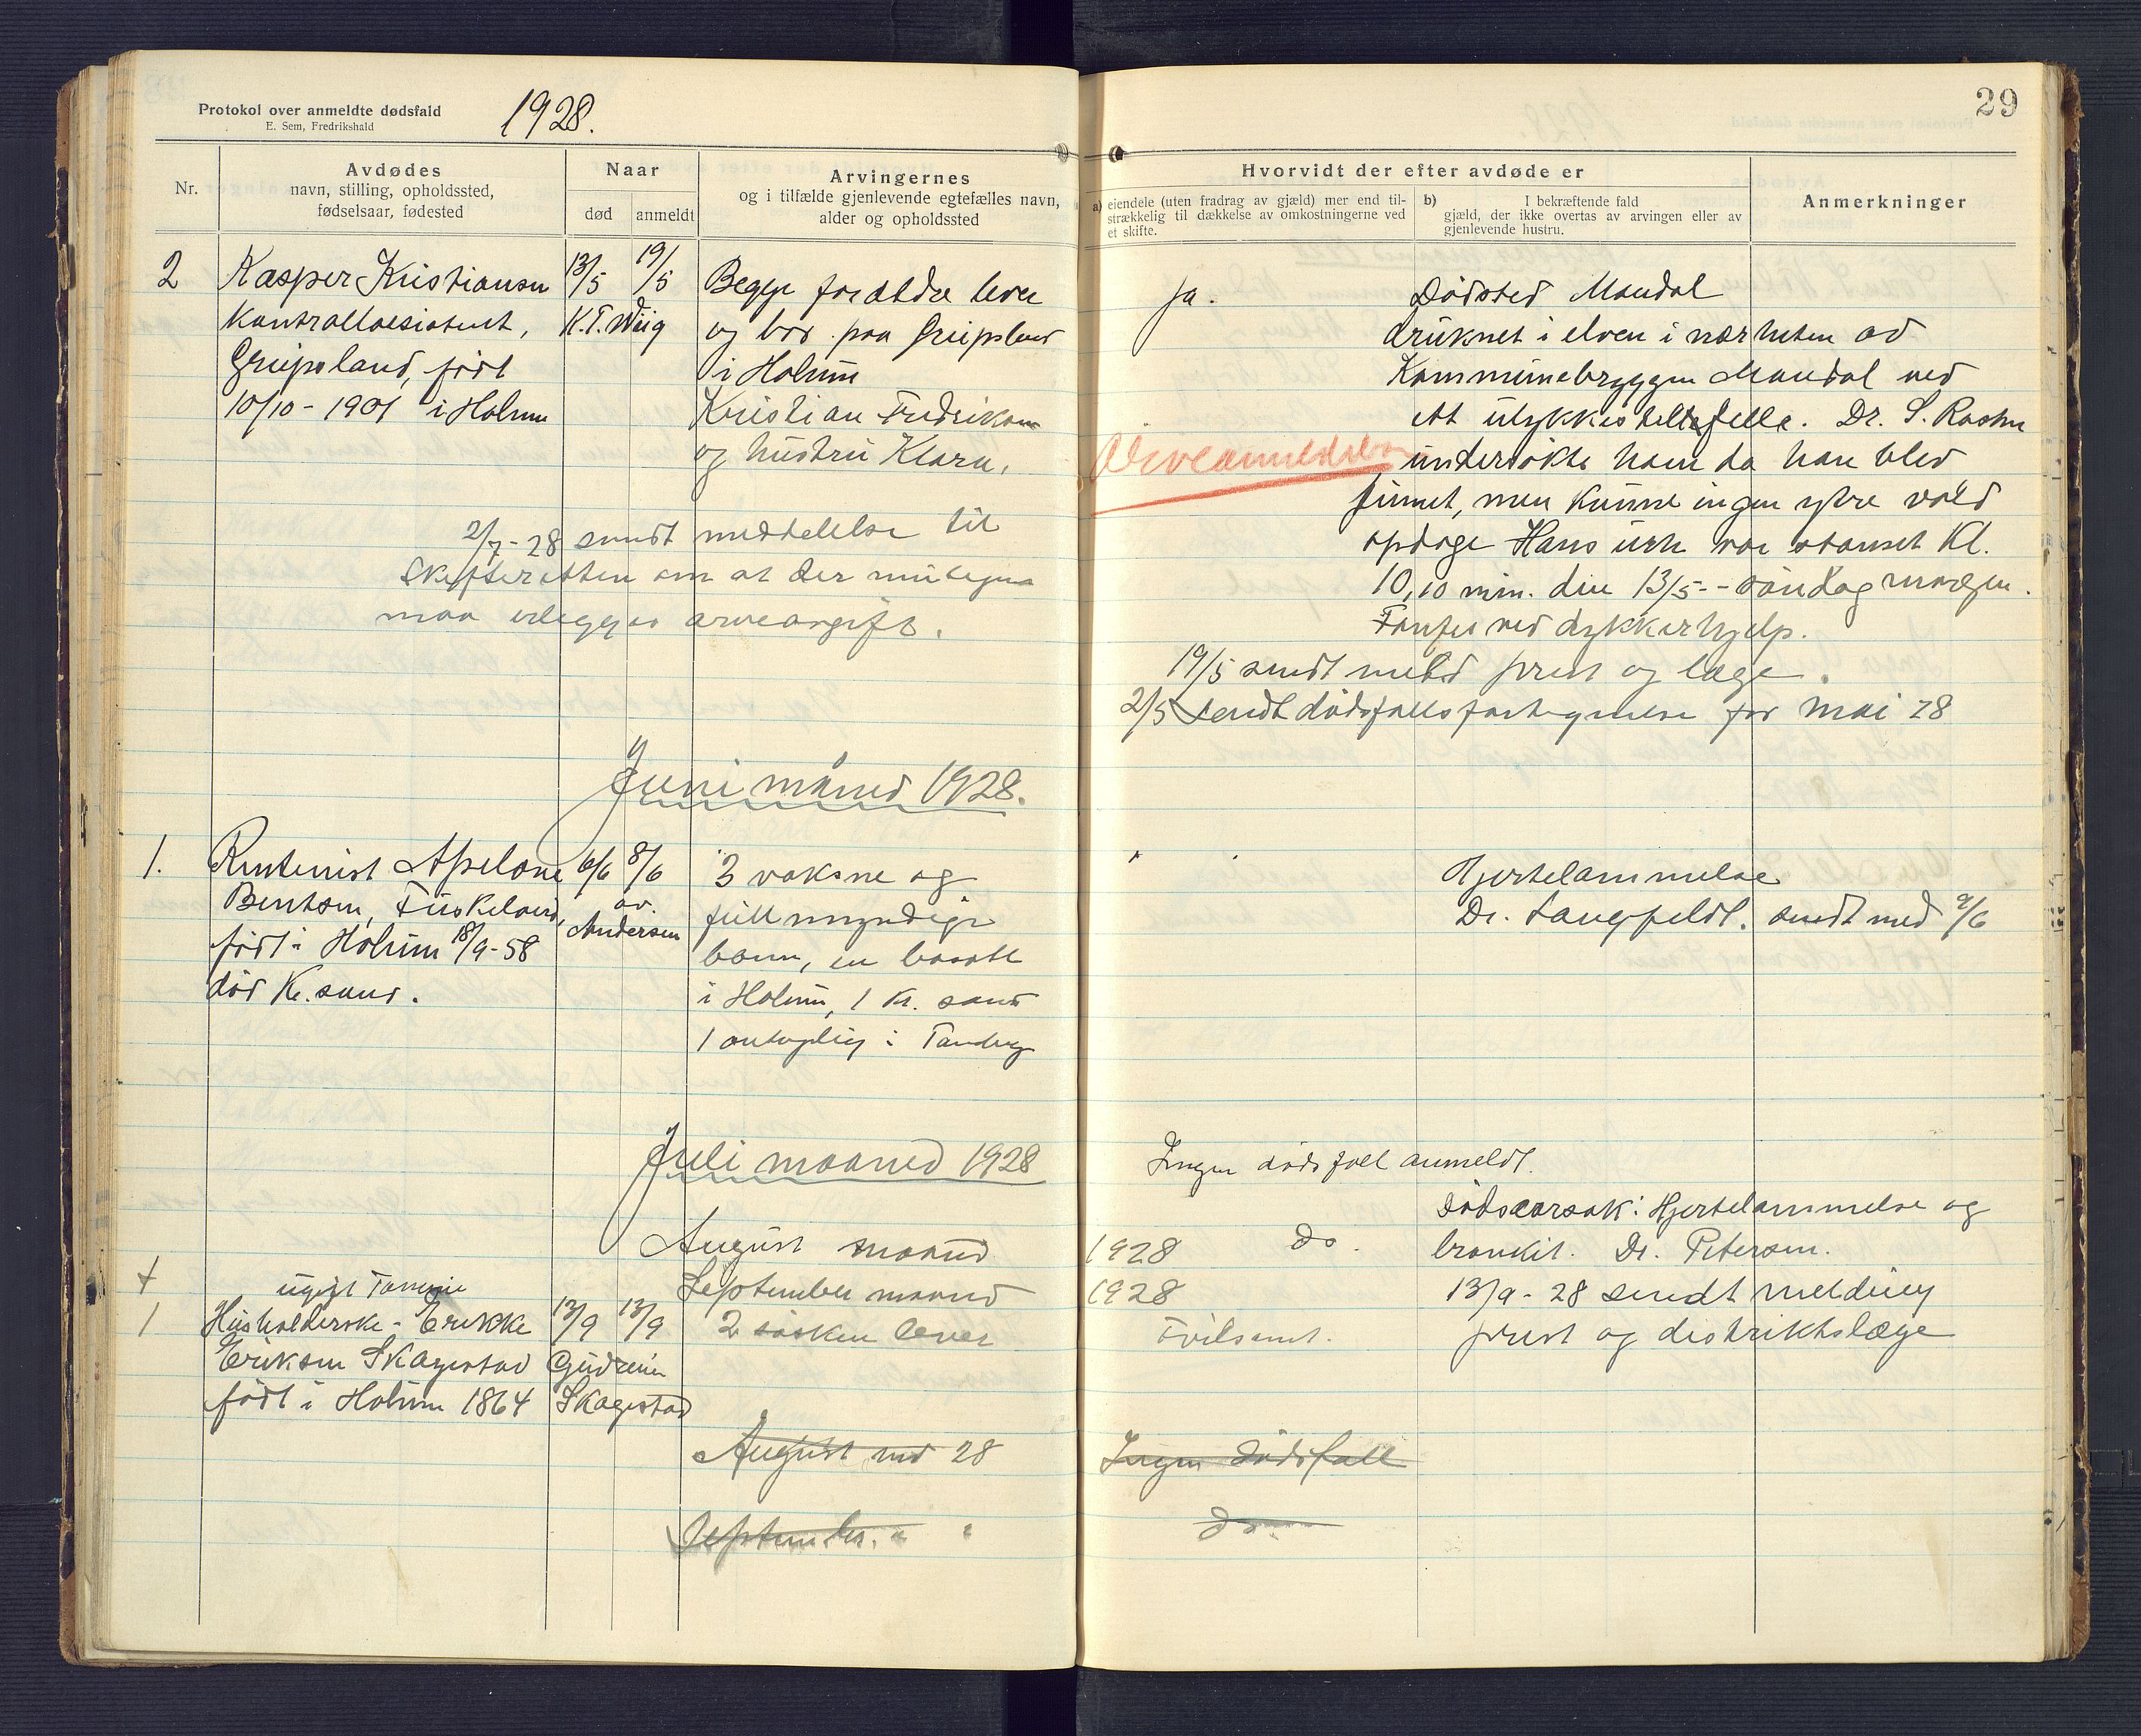 Protokol over anmeldte dødsfald
E. Sem, Fredrikshald
1928.
Nr.
Avdødes
navn, stilling, opholdssted,
fødselsaar, fødested
Naar
død
anmeldt
Arvingernes
og i tilfælde gjenlevende egtefælles navn,
alder og opholdssted
2
Kasper Kristiansen
kontrollassistent,
Greipsland, født
10/10 - 1901 i Holum
13/5
19/5
K.T. Wiig
Begge foreldre lever
og bor paa Greipsland
i Holum
Kristian Fredriksen
og hustru Klara.
2/7 - 28 sendt meddelelse til
Skifteretten om at der
maa erlegges arveavgift.
Juni måned 1928.
1.
Rentenist Apelone
Bentsen,
født i Holum 18/9 - 58
død Kr.sand.
6/6
8/6
av.
Andersen
3 voksne og
fullmyndige
barn, en bosatt
i Holum, 1 Kr. sand
1 i
Juli maaned 1928
August maaned
September maaned
†
1
ugift
Husholderske -
Eriksen Skagestad
født i Holum 1864
13/9
13/9
Gudrun
Skagestad
2 søsken lever
August md 28
September. " "
29
Hvorvidt der efter avdøde er
a) eiendele (uten fradrag av gjæld) mer end til-
strækkelig til dækkelse av omkostningerne ved
et skifte.
b) I bekræftende fald
gjæld, der ikke overtas av arvingen eller av
gjenlevende hustru.
Anmerkninger
ja.
Dødsted Mandal
druknet i elven i nærheten av
Kommunebryggen Mandal ved
ett ulykkestilfelle. Dr. S.
Arveanmeldelse
undersøkte ham da han blev
funnet, men kunne ingen ytre vold
opdage Hans urh var stanset Kl.
10,10 min. den 13/5 - søndag morgen.
Funnet ved dykkerhjelp.
19/5 sendt meld prest og læge.
2/5 Sendt dødsfallsfortegnelse for mai 28
Hjertelammelse
Dr. Langfeldt. sendt med 9/6
Ingen dødsfall anmeldt.
1928 do.
1928
Dødsaarsak: Hjertelammelse og
bronkit. Dr. Petersen.
13/9 - 28 sendt melding
prest og distriktslæge
Tvilsomt.
Ingen dødsfall
do